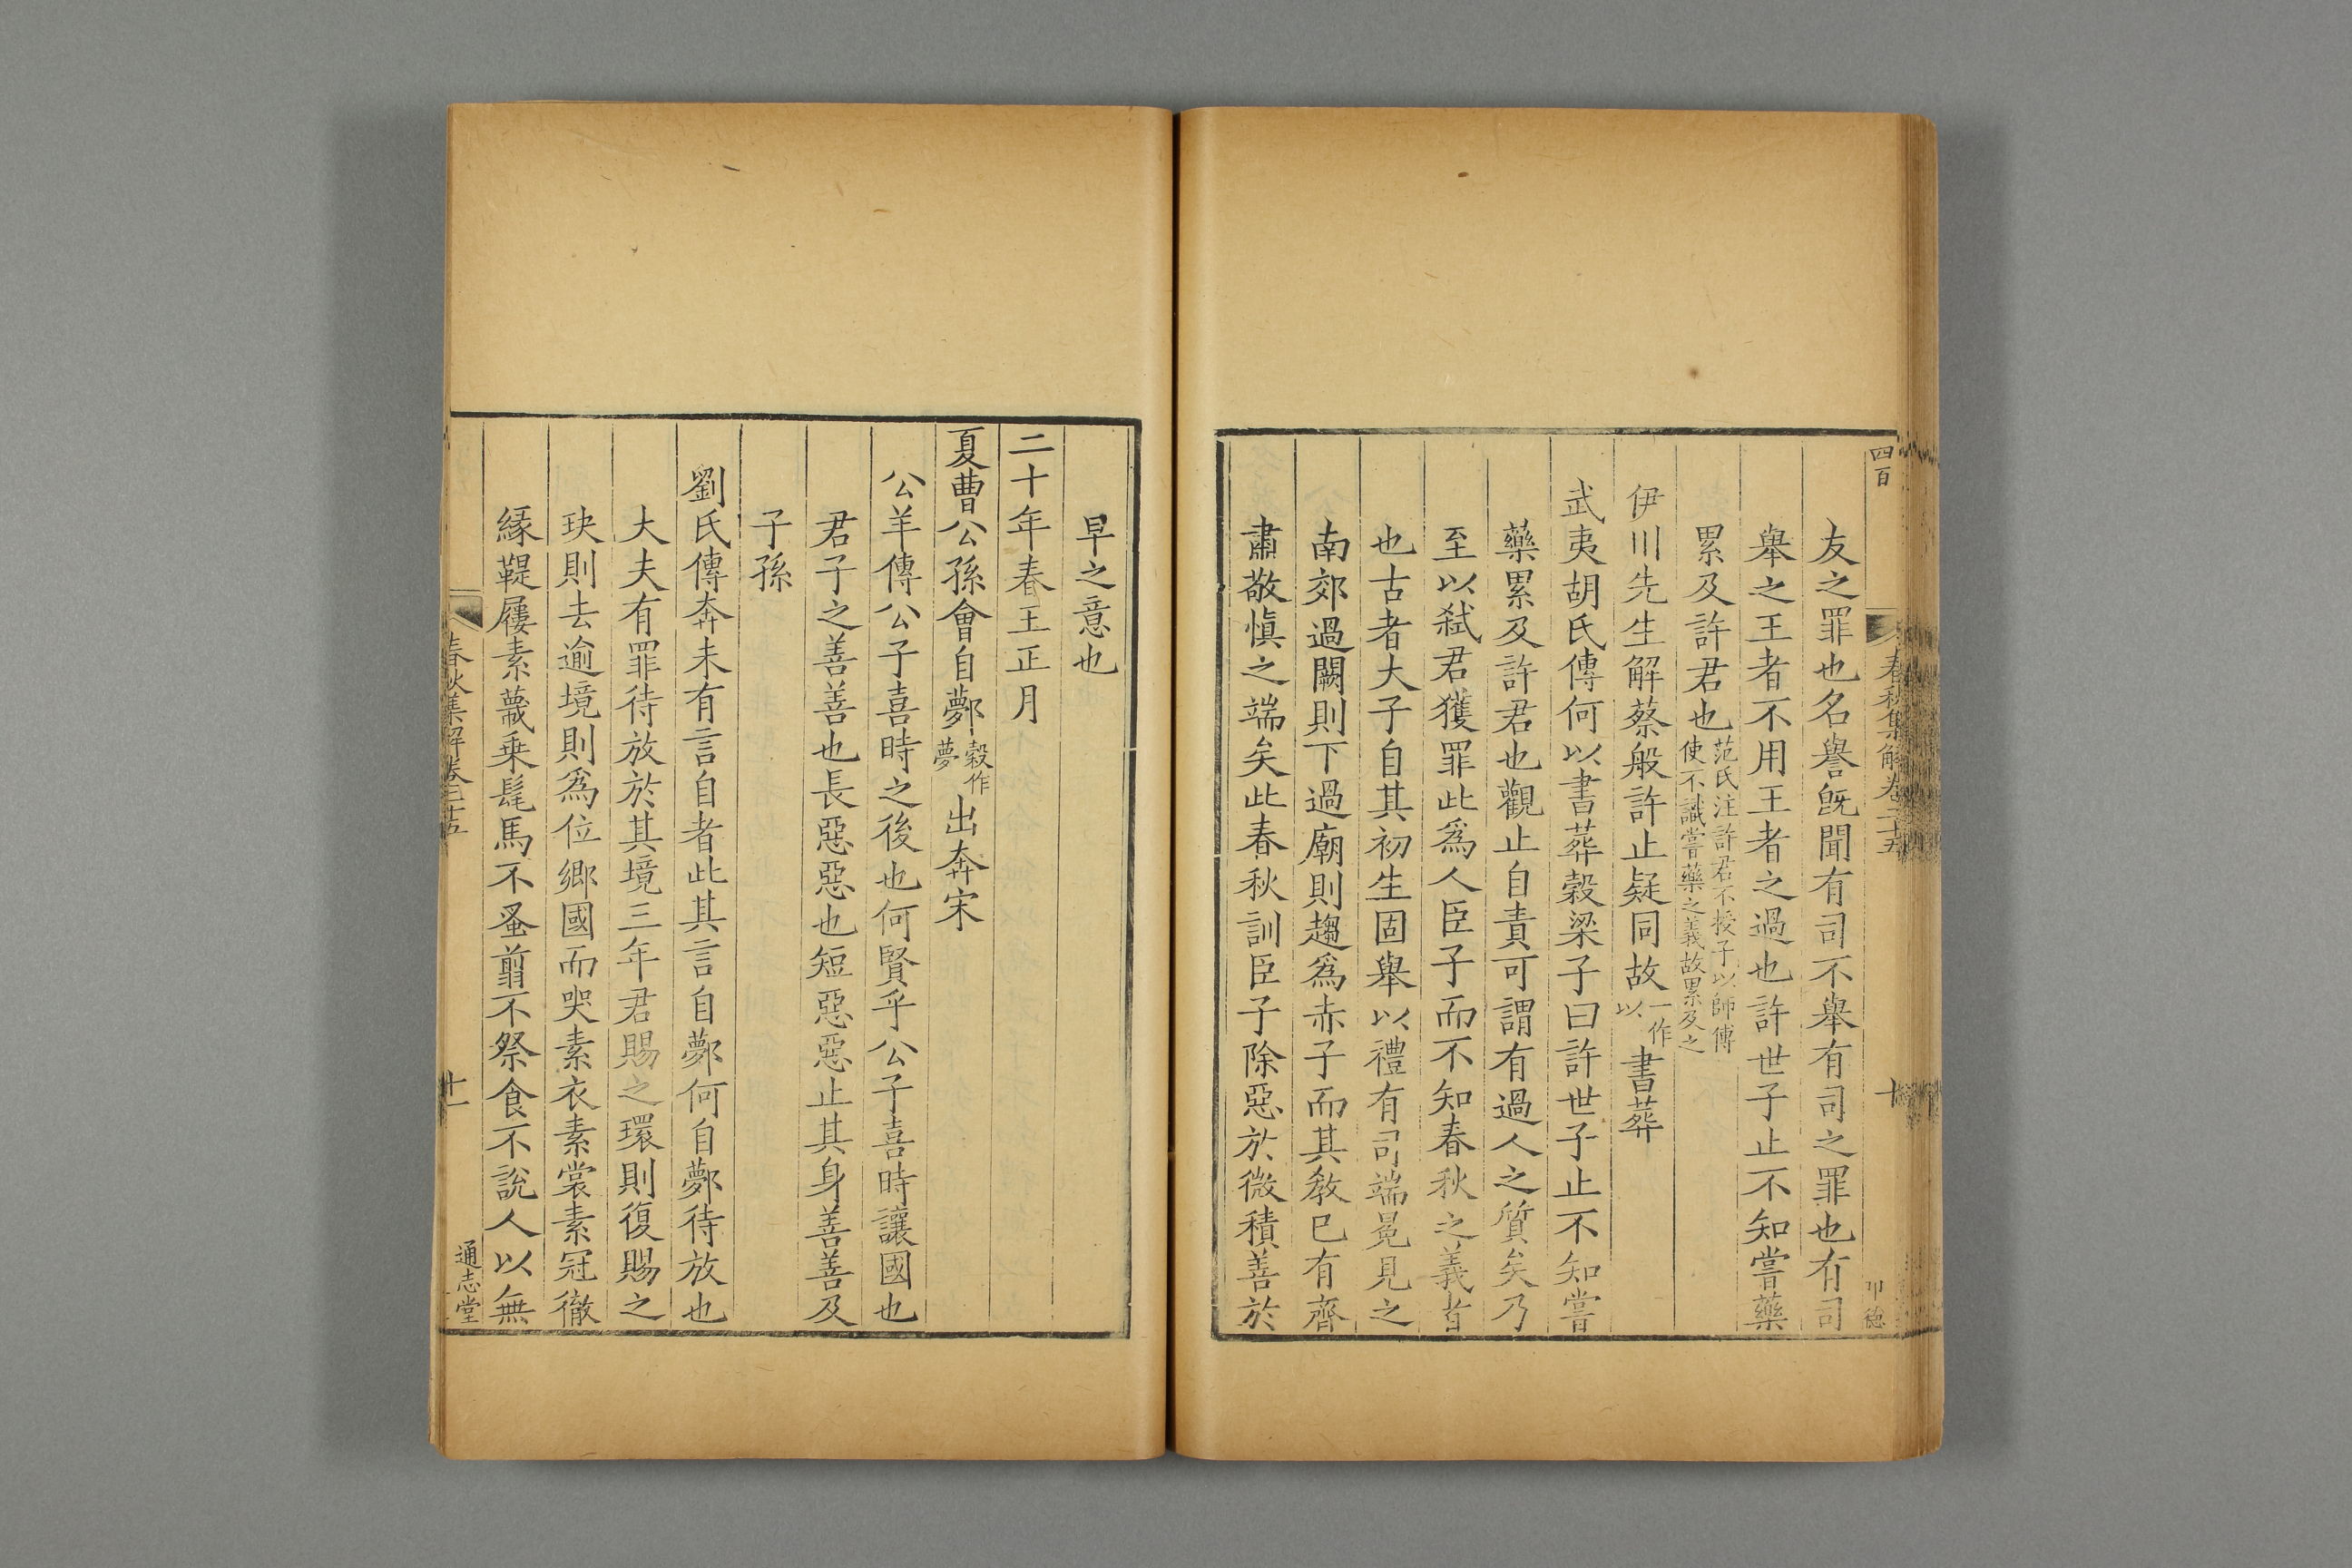 四百
春秋集解卷二十五
十
友之罪也名譽旣聞有司不舉有司之罪也有司
舉之王者不用王者之過也許世子止不知嘗藥
累及許君也范氏注許君不授子以師傅
使不識嘗藥之義故累及之
伊川先生解蔡般許止疑同故一作
以書葬
武夷胡氏傳何以書葬穀梁子曰許世子止不知嘗
藥累及許君也觀止自責可謂有過人之質矣乃
至以弑君獲罪此爲人臣子而不知春秋之義者
也古者大子自其初生固舉以禮有司端冕見之
南郊過闕則下過廟則趨爲赤子而其敎已有齊
肅敬愼之端矣此春秋訓臣子除惡於微積善於
早之意也
二十年春王正月
夏曹公孫會自鄸穀作
夢出奔宋
公羊傳公子喜時之後也何賢乎公子喜時讓國也
君子之善善也長惡惡也短惡惡止其身善善及
子孫
劉氏傳奔未有言自者此其言自鄸何自鄸待放也
大夫有罪待放於其境三年君賜之環則復賜之
玦則去逾境則爲位鄉國而哭素衣素裳素冠徹
緣鞮屨素蔑乗髦馬不蚤翦不祭食不說人以無
春秋集解卷二十五
十一
通志堂